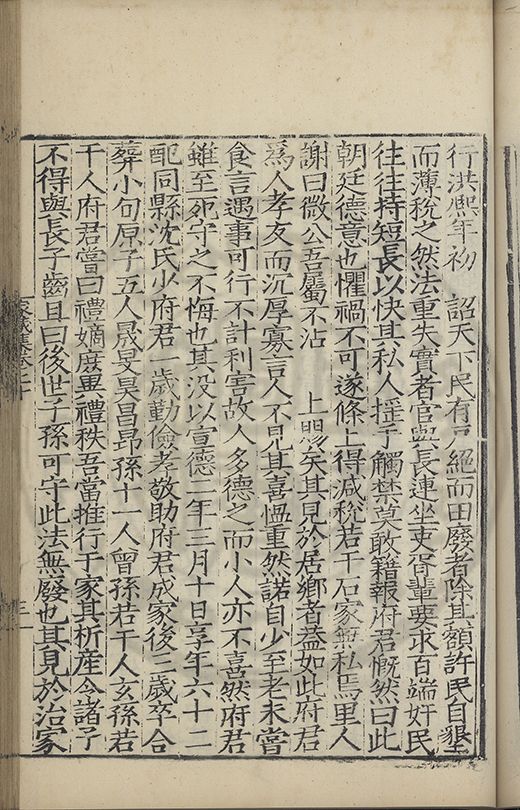 行洪熙年初　詔天下民有戶絕而田廢者除其額許民自墾
而薄稅之然法重失實者官與長連坐吏胥輩要求百端奸民
往往持短長以快其私人搖手觸禁莫敢籍報府君慨然曰此
朝廷德意也懼禍不可遂條上得減稅若干石家無私焉里人
謝曰微公吾屬不沾　　上賜矣其見於居鄉者葢如此府君
爲人孝友而沉厚寡言人不見其喜慍重然諾自少至老未嘗
食言遇事可行不計利害故人多德之而小人亦不喜然府君
雖至死守之不悔也其没以宣德二年三月十日享年六十二
配同縣沈氏少府君一歲勤儉孝敬助府君成家後三歲卒合
葬小句原子五人晟旻昊昌昂孫十一人曾孫若干人玄孫若
干人府君嘗曰禮嫡庶異禮秩吾當推行于家其析産令諸子
不得與長子齒且曰後世子孫可守此法無廢也其見於治家